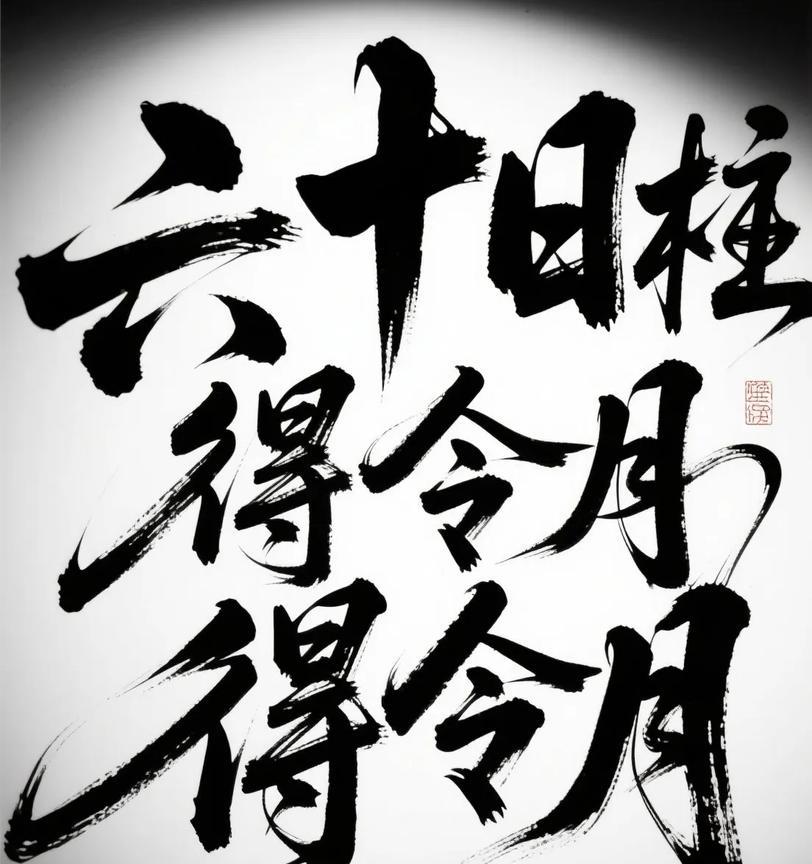 六十日柱
得令月
得令月